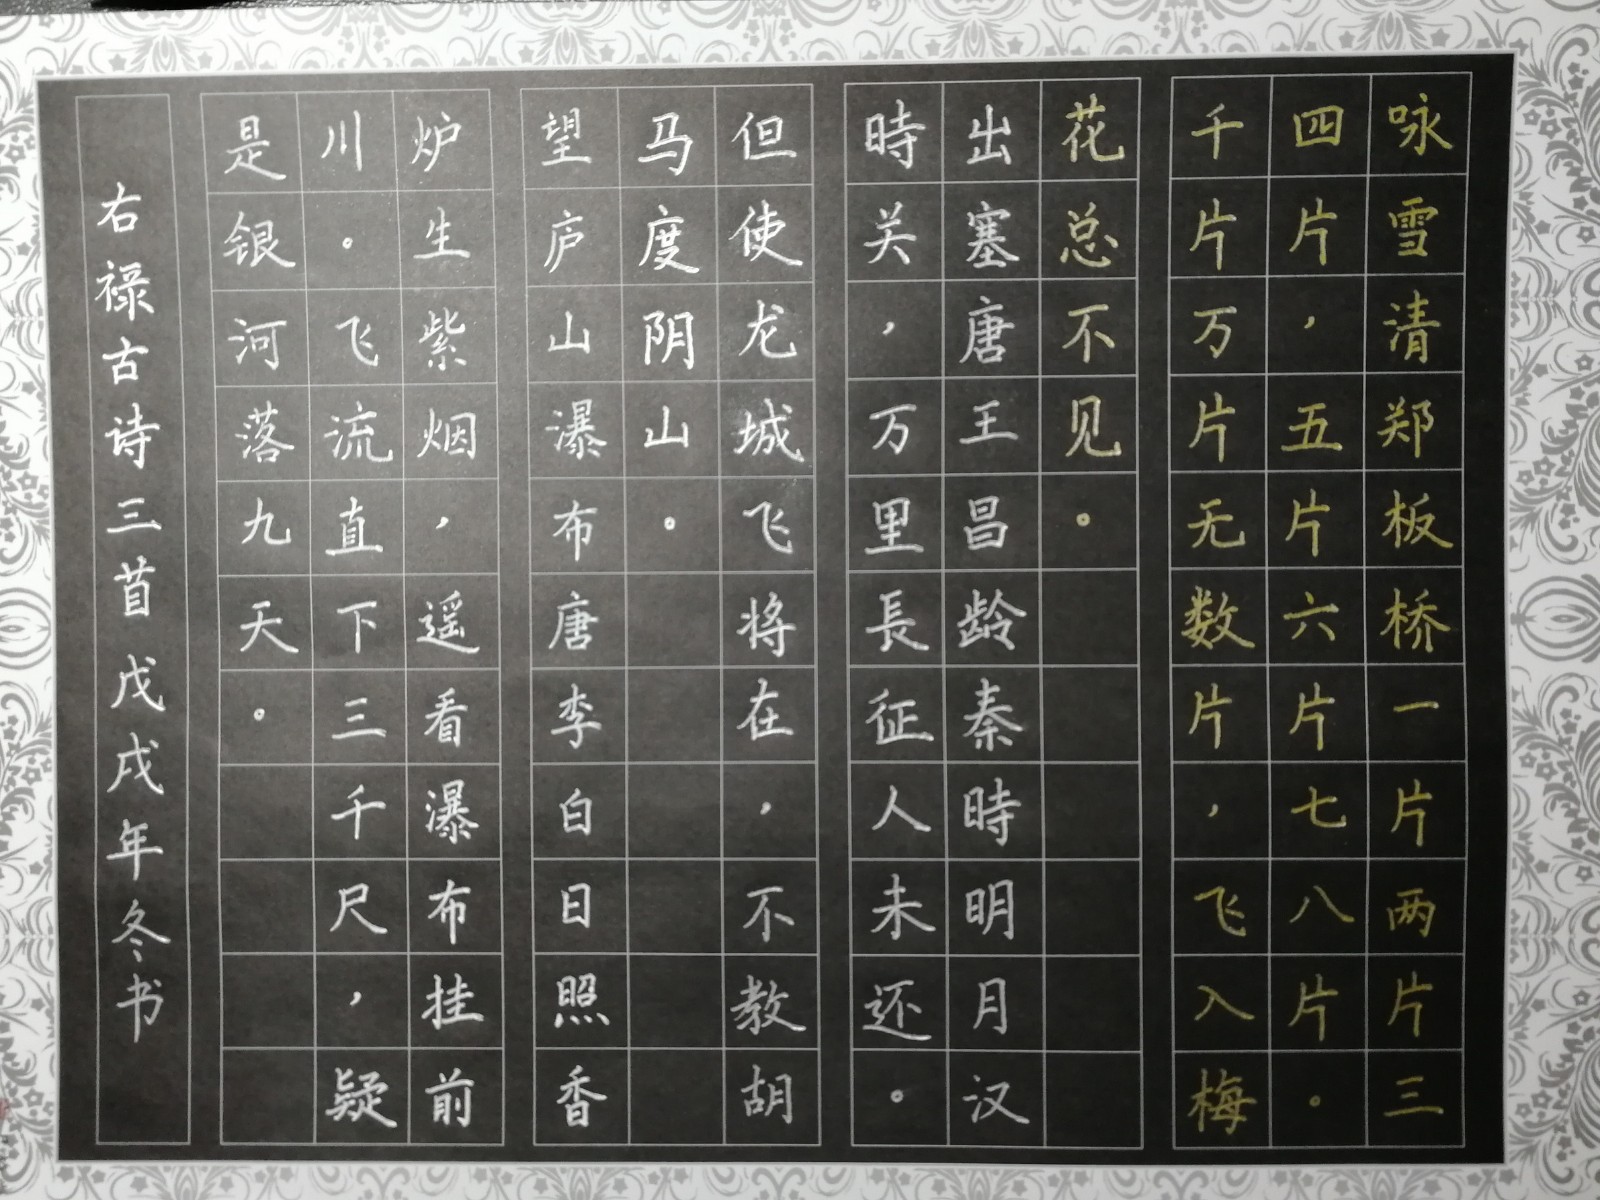 咏雪清郑板桥一片两片三
四片，五片六片七八片。
千片万片无数片，飞入梅
花总不见。
出塞唐王昌龄秦時明月汉
時关，万里長征人未还。
但使龙城飞将在，不教胡
马度阴山。
望庐山瀑布唐李白日照香
炉生紫烟，遥看瀑布挂前
川。飞流直下三千尺，疑
是银河落九天。
右禄古诗三首戊戌年冬书